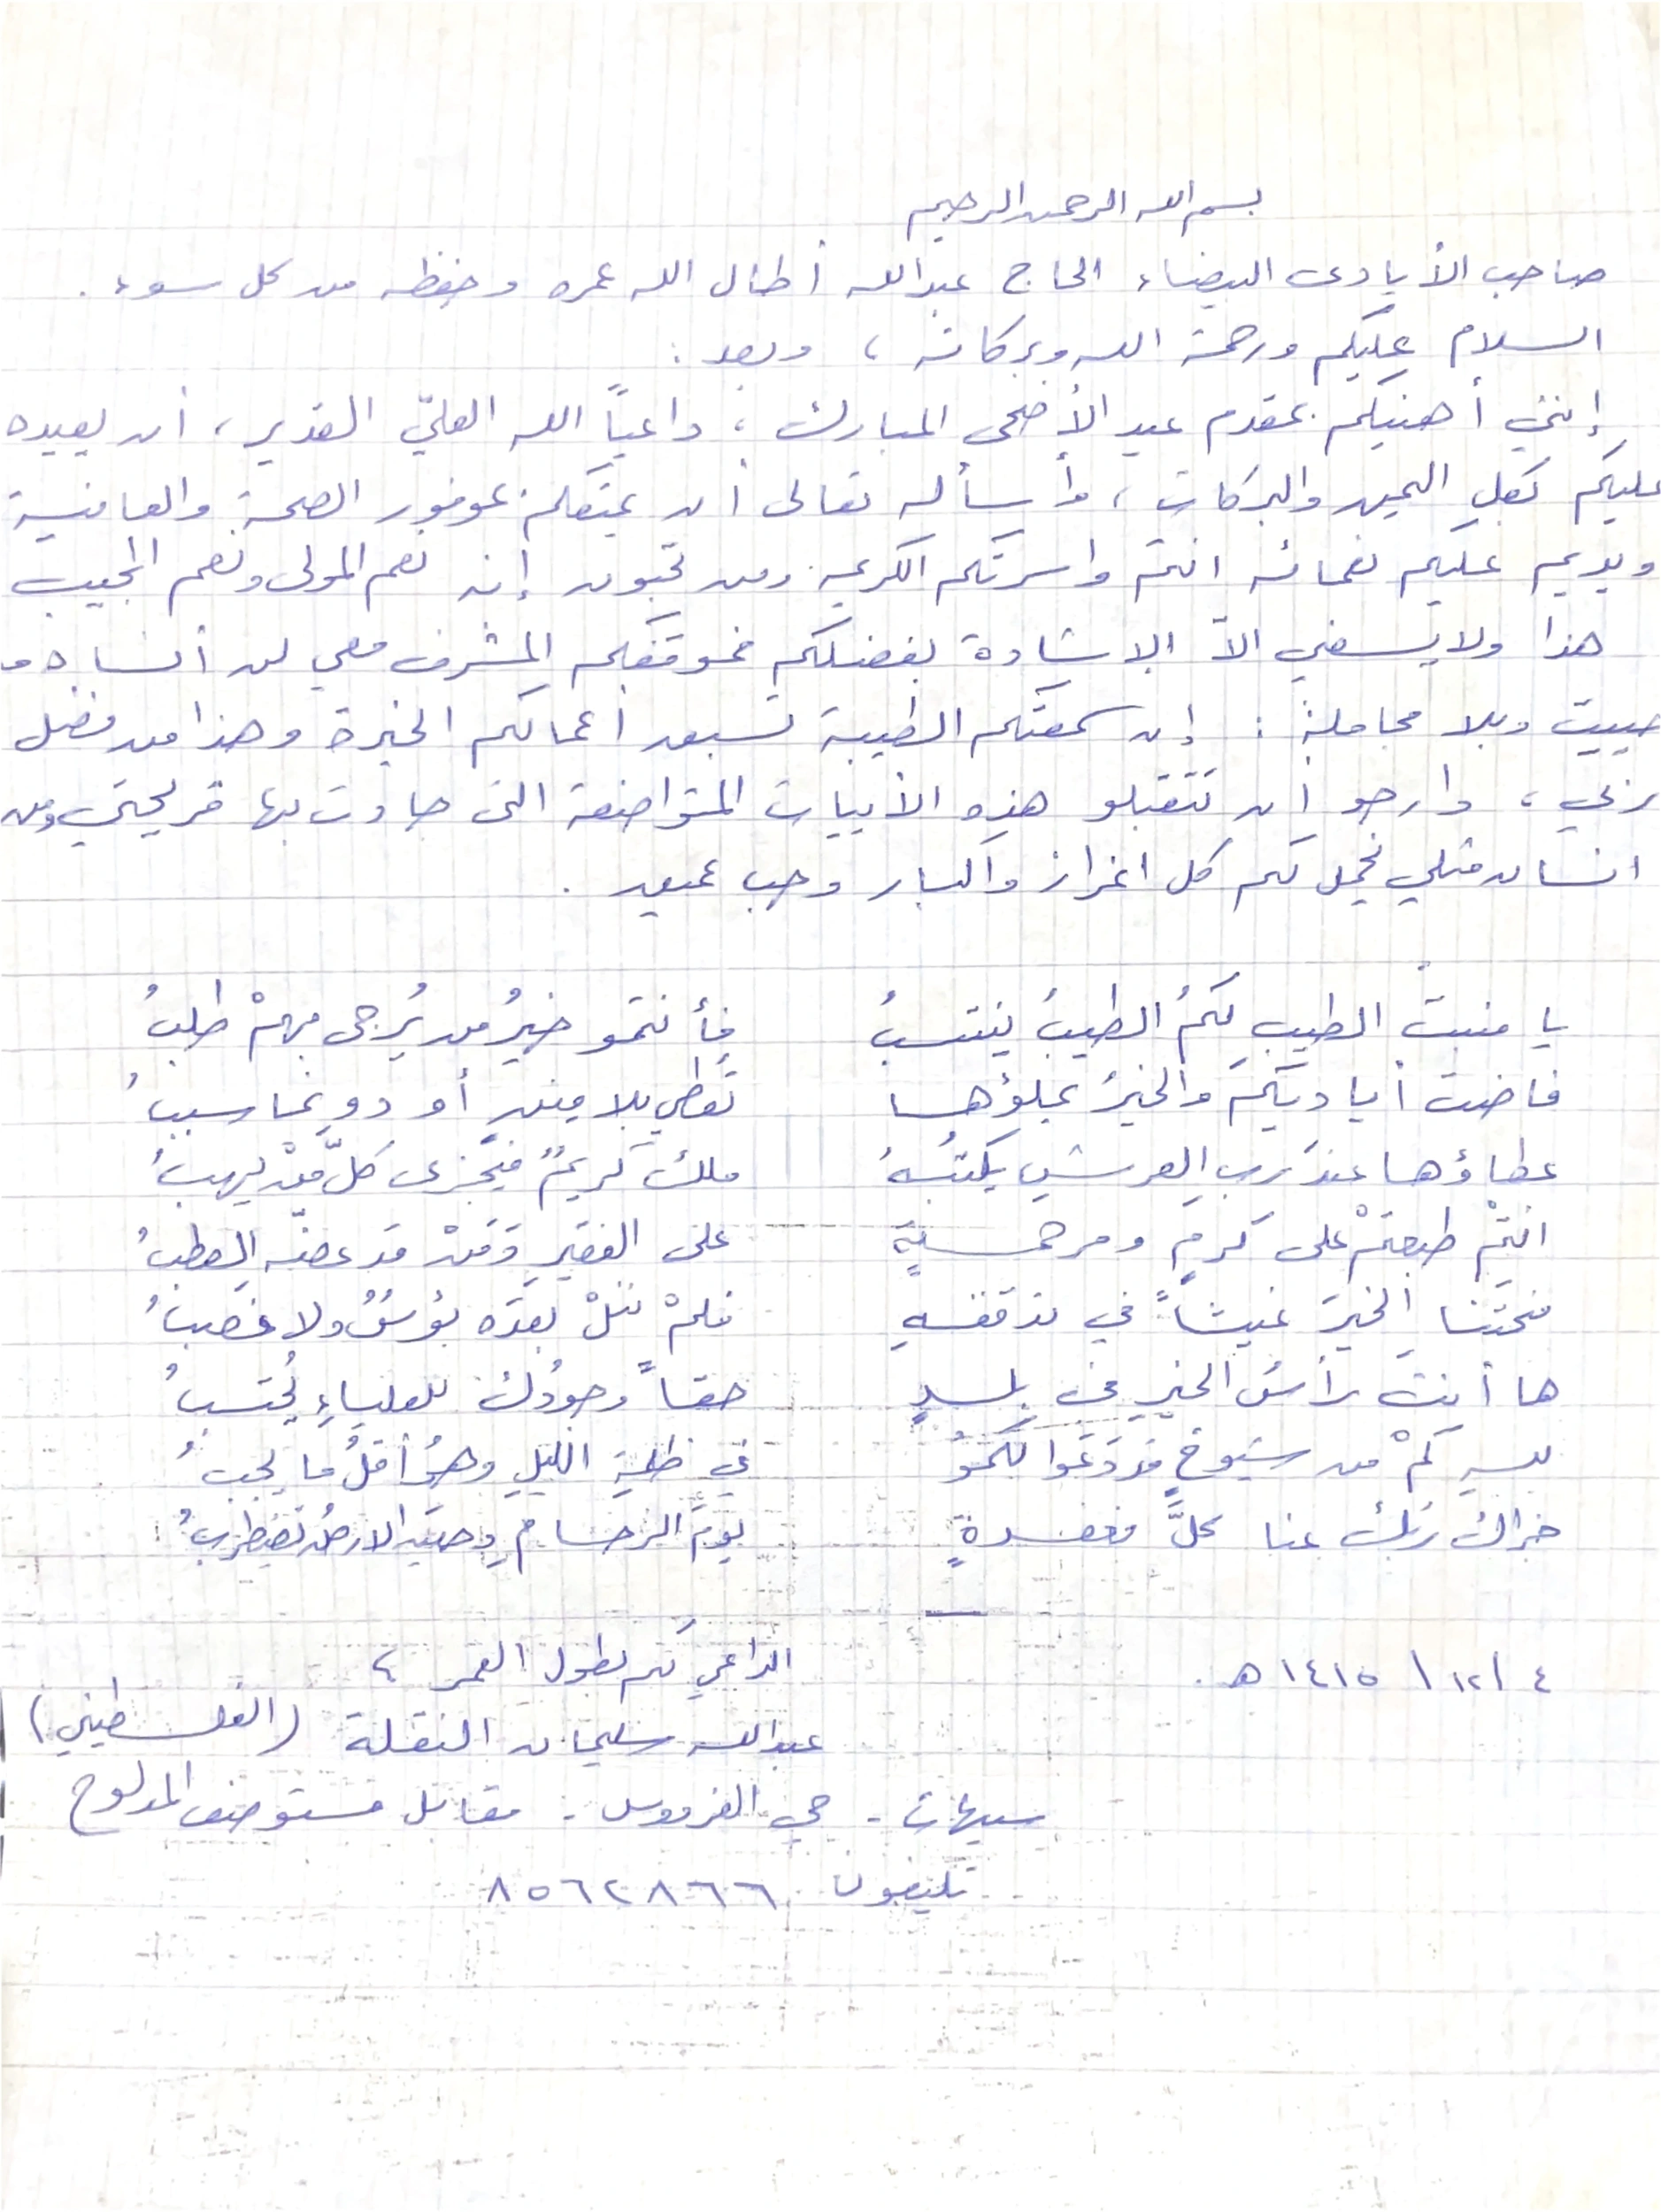 بسم الله الرحمن الرحيم
صاحب الأيادى البيضاء الحاج عبدالله أطال الله عمره وحفظه من كل سوء .
السلام عليكم ورحمة الله وبركاته ، وبعد :
إنني أهنيكم بمقدم عيد الأضحى المبارك ، داعياً الله العليّ القدير ، أن يعيده
عليكم بكل اليمن والبركات ، وأسأله تعالى أن يمتعكم بموفور الصحة والعافية
ويديم عليكم نعمائه انتم واسرتكم الكريمه ومن تحبون إنه نعم المولى ونعم المجيب
هذا ولا يسعني الاّ الاشادة بفضلكم فموقفكم المشرف معي لن أنساه ما
حييت وبلا مجاملة : إن سمعتكم الطيبة تسبق أعمالكم الخيرة وهذا من فضل
ربي ، وارجو أن تتقبلو هذه الأبيات المتواضعة التى جادت بها قريحتي ومن
انسان مثلي يحمل لكم كل اعزاز واكبار وحب عميق .
يا منبتَ الطيبِ لكمُ الطيبُ ينتسبُ فأنتمو خيرُ من يُرجى بهمْ طلبُ
فاضت أياديكمُ والخيرُ يملؤها تعطي بلا مننٍ أو دونما سببُ
عطاؤها عندَ ربِ العرشِ يكتبُهُ ملكٌ كريمٌ فيجزى كلَّ مَنْ يهبُ
انتمْ طبعتمْ على كرمٍ ومرحمةٍ على الفقيرِ وَمَنْ قد عضّه العطبُ
منحتنا الخيرَ غيثاً في تدفقهِ فلمْ نَنَلْ بعدَه بؤسٌ ولا غضبُ
ها أنتَ رأسُ الخيرِ في بلدٍ حقاً وجودُك للعلياءِ يُحتسبُ
لله كمْ من شيوخٍ قد دَعَوا لكمُو في ظلمةِ الليلِ وهوُ أقلُ ما يجبُ
جزاك ربُك عنا كلَّ مغفرةٍ يومَ الزحامِ وحين الارضُ تضطربُ
٤ / ١٢ / ١٤١٥ هـ . الداعي لكم بطول العمر ،
عبدالله سليمان النقلة (الفلسطيني)
سيهات - حي الفردوس - مقابل مستوصف المدلوح
تليفون ٨٥٦٢٨٦٦